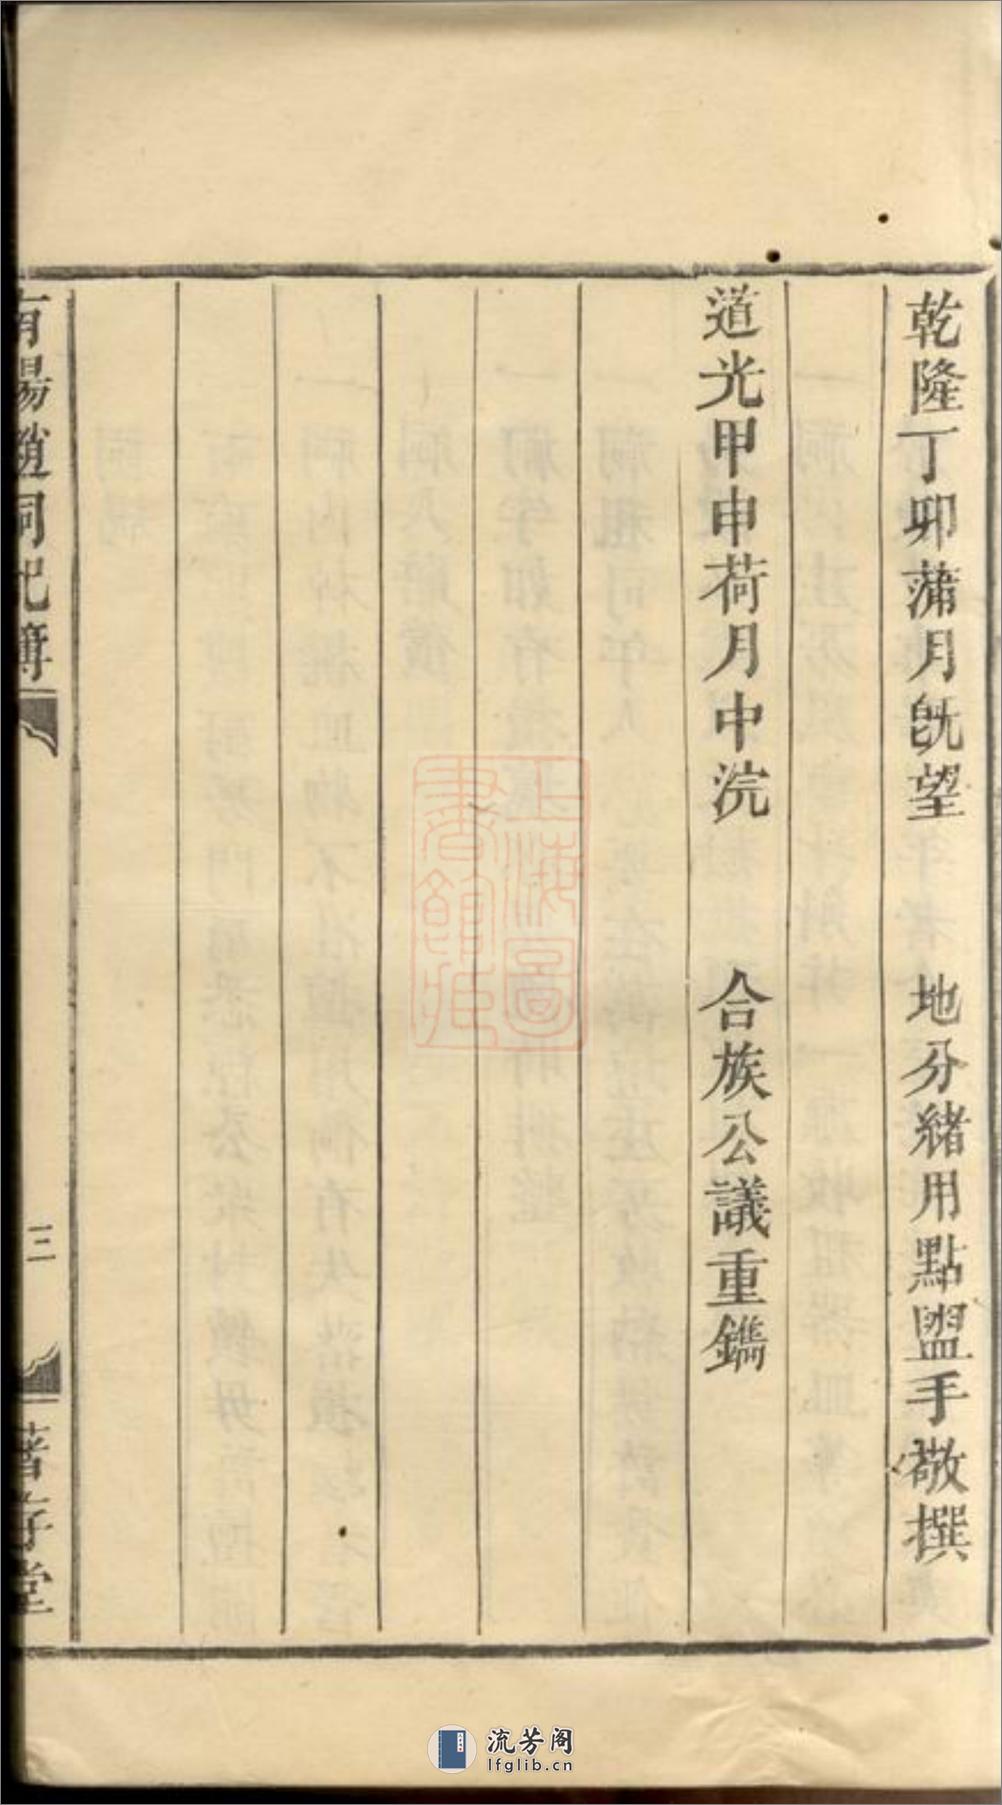 乾隆丁卯蒲月旣望　地分緒用點盥手敬撰
道光甲申荷月中浣　合族公議重鐫
南陽趙祠祀簿　三　著存堂
上海圖書館藏
流芳阁
lfglib.cn